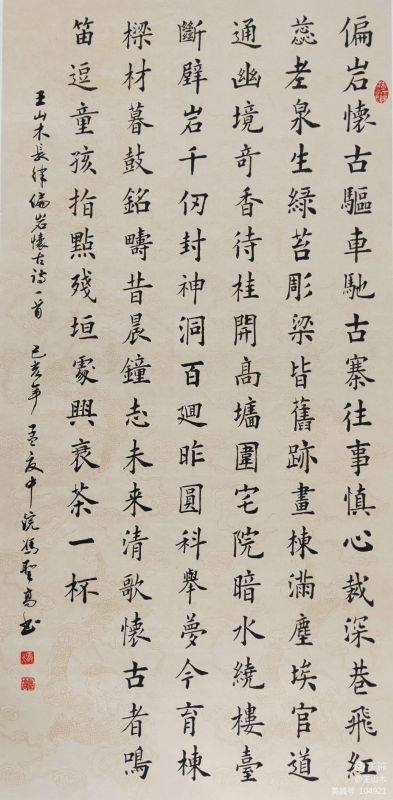 偏岩懷古驅車馳古寨往事慎心裁深巷飛紅
蕊老泉生綠苔彫梁皆舊跡畫棟滿塵埃官道
通幽境奇香待桂開高墻圍宅院暗水繞樓臺
斷壁岩千仞封神洞百廻昨圓科舉夢今育棟
樑材暮鼓銘疇昔晨鐘志未来清歌懷古者鳴
笛逗童孩指點殘垣處興衰茶一杯
王山木長律偏岩懷古詩一首 己亥年孟夏中浣馮聖高书
王山木
美篇号 104921